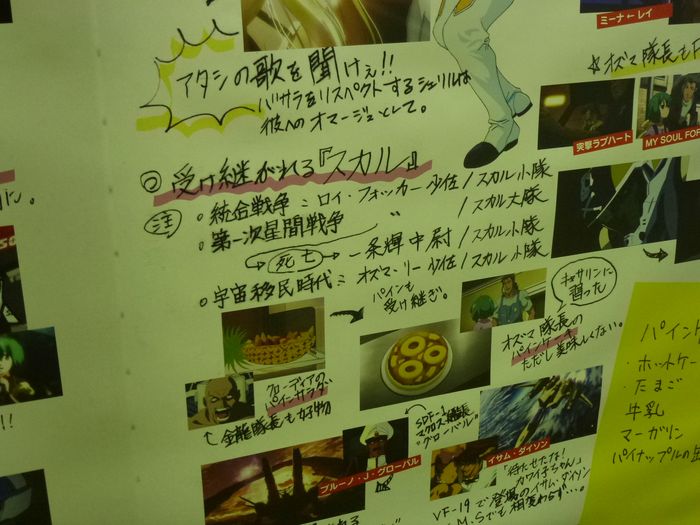 ミーナ←レイ
☆オズマ隊長もF
アタシの歌を聞けぇ!!
バサラをリスペクトするシェリルは
彼へのオマージュとして。
突撃ラブハート
MY SOUL FOR
受け継がれる『スカル』
注
○統合戦争:ロイ・フォッカー少佐/スカル小隊
○第一次星間戦争 〃 /スカル大隊
死亡→一条輝中尉/スカル小隊
○宇宙移民時代:オズマ・リー少佐/スカル小隊
パインも
受け継ぎ。
キャサリンに
習った
オズマ隊長の
パインケーキ
ただし美味しくない。
クローディアの
パインサラダ
↑金龍隊長も好物
SDF-1
マクロス艦長
"グローバル"
ブルーノ・J・グローバル
イサム・ダイソン
「待たせたな!
カワイ子ちゃん」
VF-19で登場のイサム・ダイソン
M.Sでも相変わらず…。
パインケ
・ホットケー
・たまご
牛乳
マーガリン
パイナップルの缶